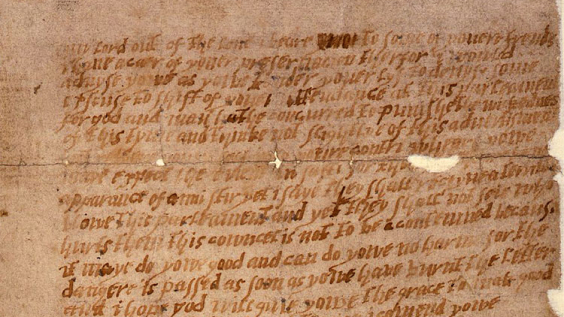 my lord out of the love i beare to some of youere frends
i have a caer of youer preservacion therfor i would
advyse yowe as yowe tender youer lyf to devyse some
excuse to shift of youer attendance at this parleament
for god and man hathe concurred to punishe the wickednes
of this tyme and thinke not slightlye of this advertisment
youre contri wheare yowe
maye expect the event in safti for
apparance of anni stir yet i saye they shall receyve a terrible
blowe this parleament and yet they shall not seie who
hurts them this cowncel is not to be acontemned because
it maye do yowe good and can do yowe no harme for the
dangere is passed as soon as yowe have burnt the letter
and i hope god will give yowe the grace to mak good
i comend yowe